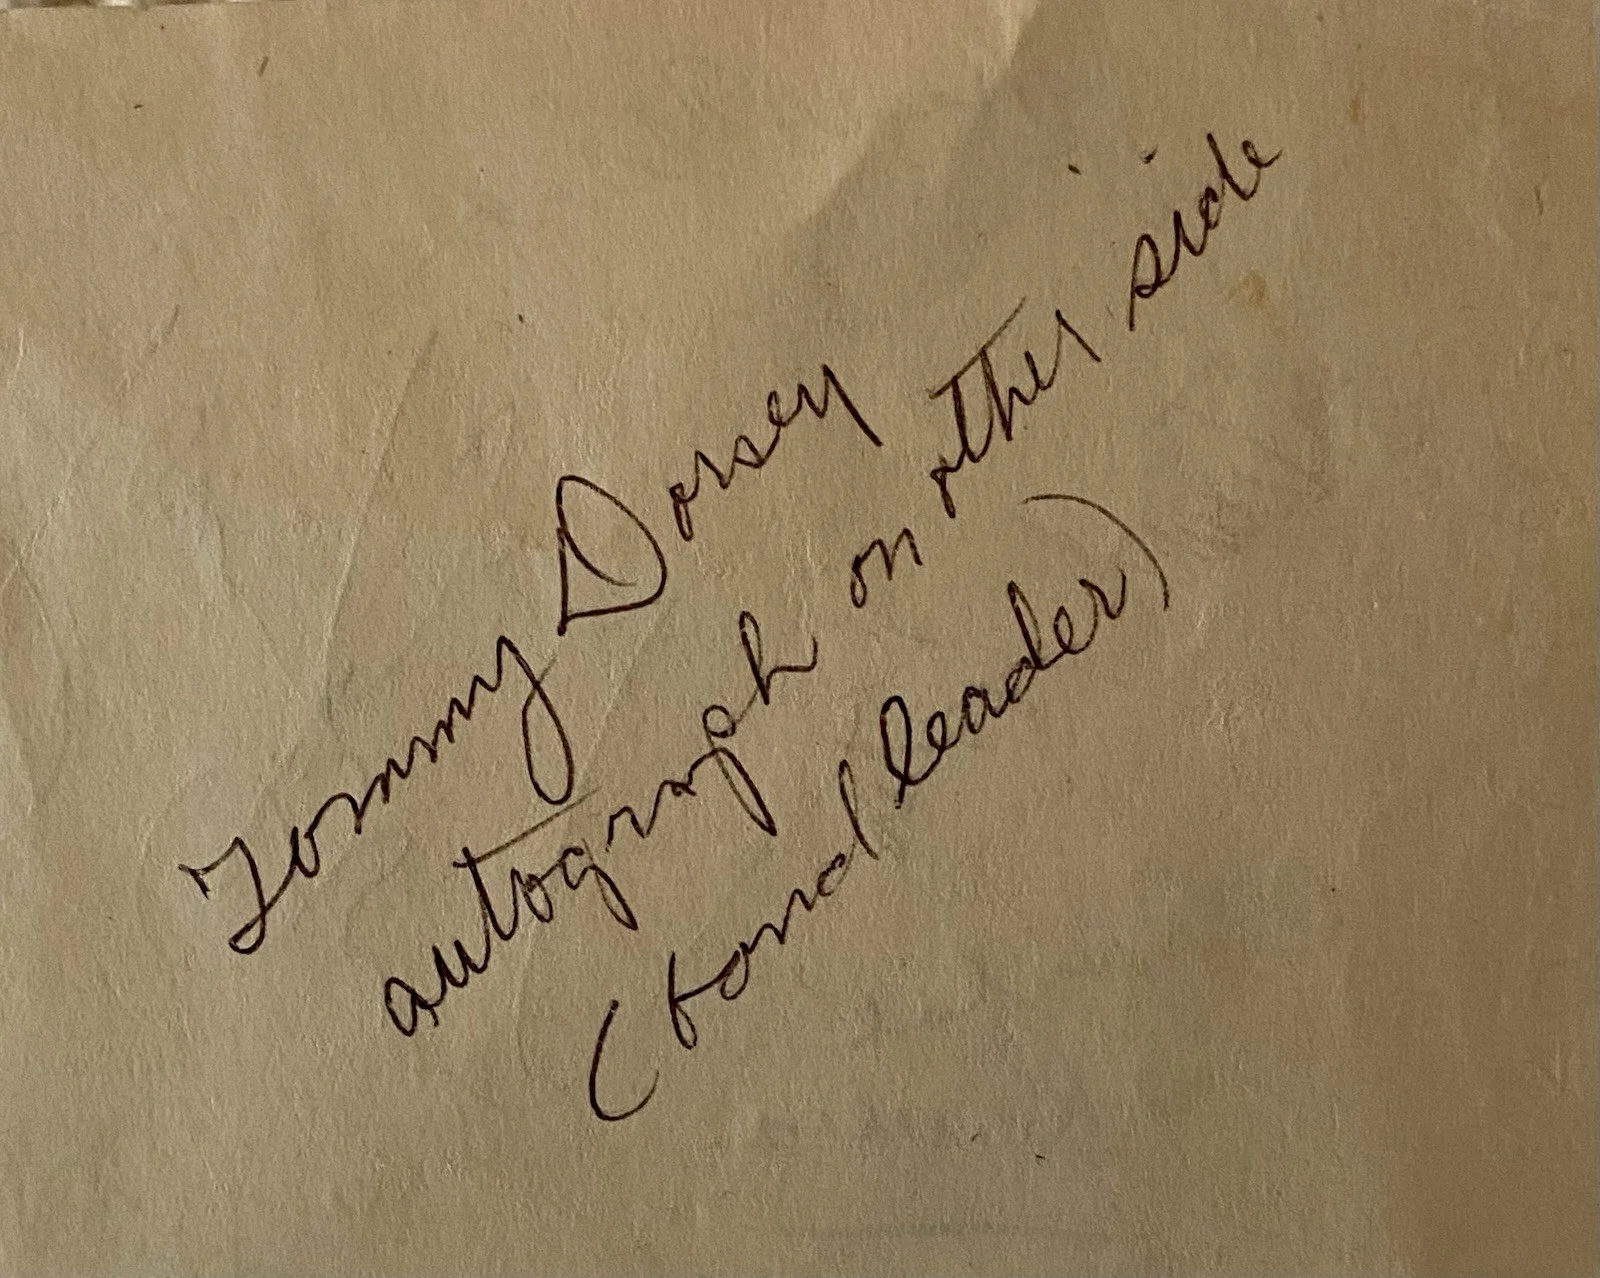 Tommy Dorsey
autograph on other side
(band leader)